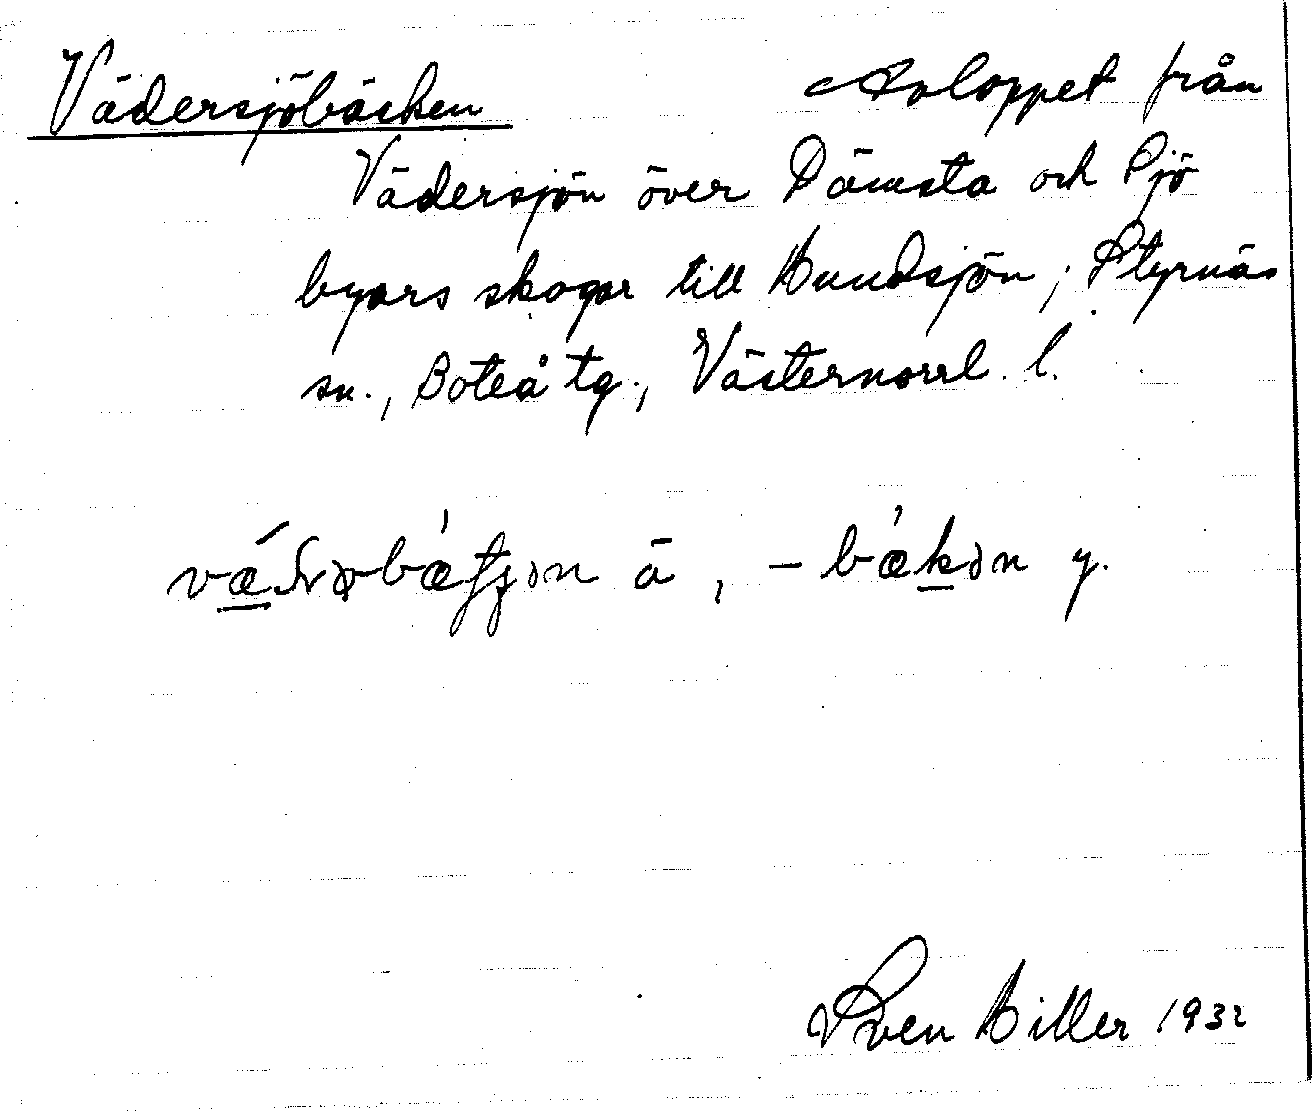 Vädersjöbäcken Avloppet från
Vädersjön över Dämsta och Sjö
byars skogar till Hundsjön, Styrnäs
sn., Boteå tg., Västernorrl. l.
ä, -bækən y.
Sven Hiller 1932